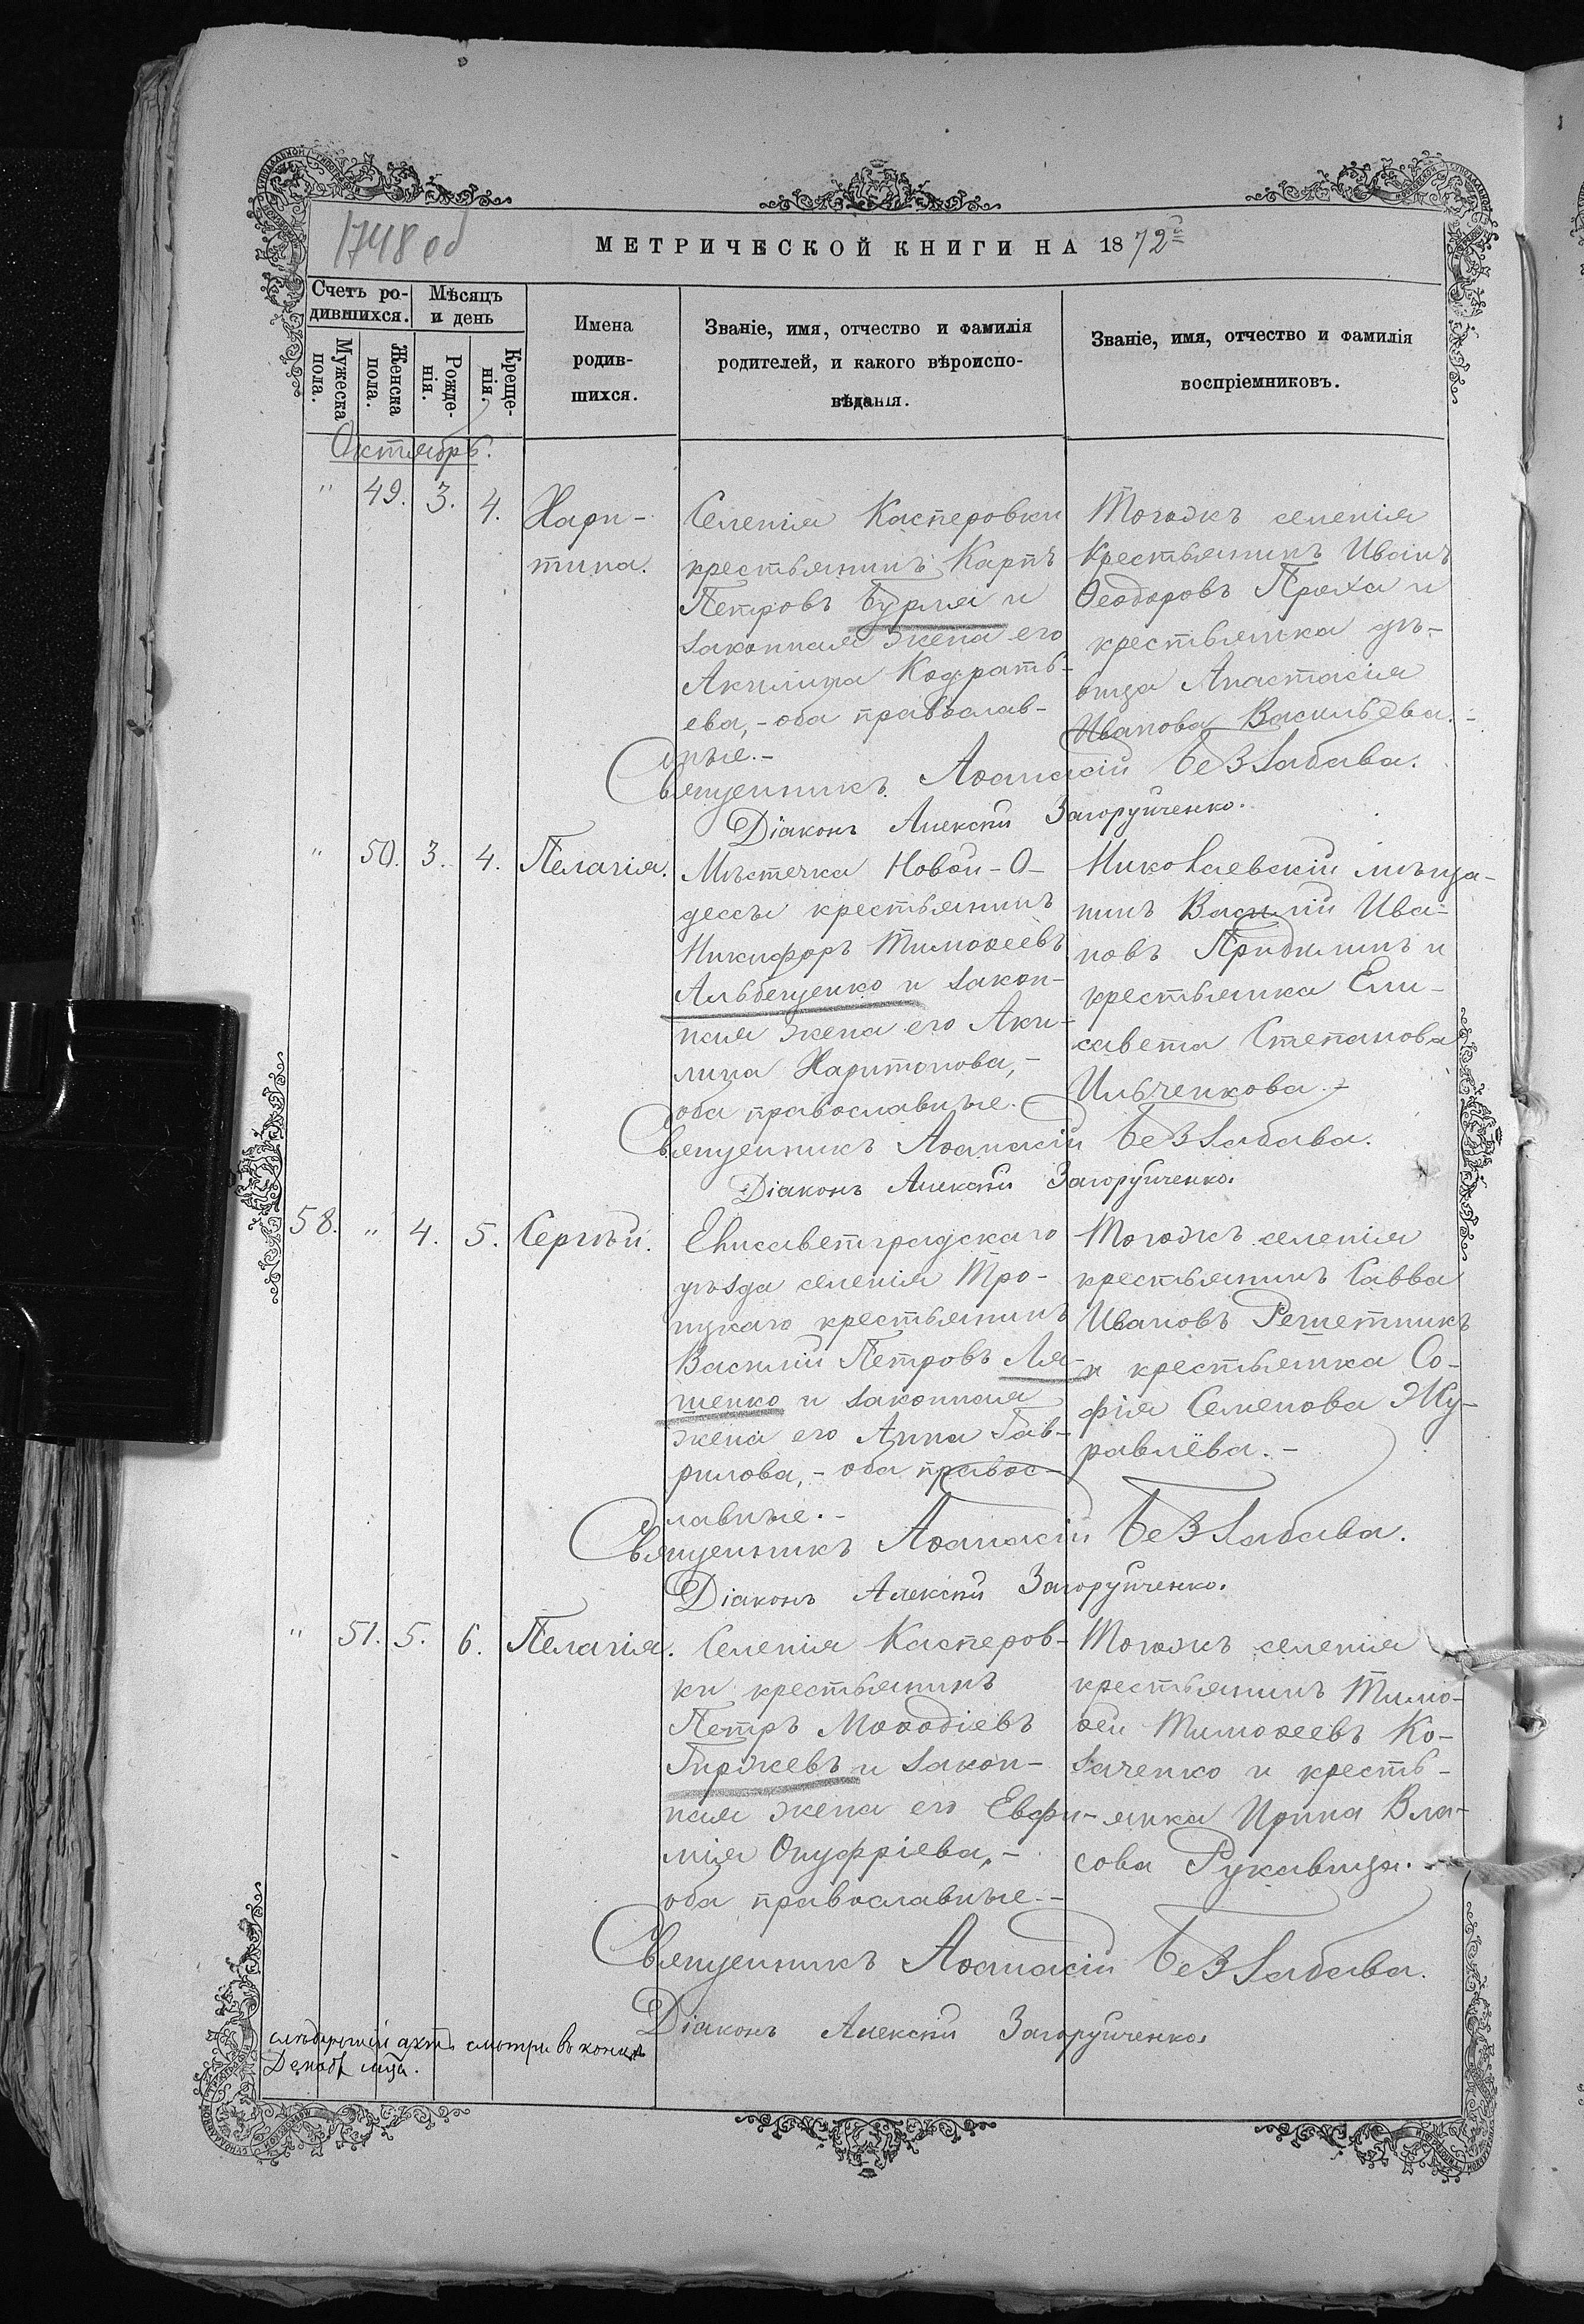 1748 об
МЕТРИЧЕСКОЙ КНИГИ НА 1872й
Счетъ ро-
дившихся.
Мѣсяцъ
и день
Мужеска
пола.
Женска
пола.
Рожде-
нія.
Креще-
нія.
Имена
родив-
шихся.
Званіе, имя, отчество и фамилія
родителей, и какого вѣроиспо-
вѣданія.
Званіе, имя, отчество и фамилія
воспріемниковъ.
Октябрь.
" 49. 3. 4.
Хари-
тина.
Селенія Касперовки
крестьянинъ Карпъ
Петровъ Бурля и
законная жена его
Акилина Кодрать-
ева, - оба православ-
ные. -
Тогожъ селенія
Крестьянинъ Иванъ
Ѳеодоровъ Проха и
крестьянка дѣ-
вица Анастасія
Иванова Васильева. -
Священникъ Аѳанасій Беззабава.
Діаконъ Алексѣй Загоруйченко.
" 50. 3. 4. Пелагія.
Мѣстечка Новой-О-
дессы крестьянинъ
Никифоръ Тимоѳеевъ
Альбещенко и закон-
ная жена его Аки-
лина Харитонова, -
оба православные.
Николаевскій мѣща-
нинъ Василій Ива-
новъ Придилинъ и
крестьянка Ели-
савета Степанова
Ильченкова. -
Священникъ Аѳанасій Беззабава.
Діаконъ Алексѣй Загоруйченко.
58. " 4. 5. Сергѣй.
Елисаветградскаго
уѣзда селенія Тро-
ицкаго крестьянинъ
Василій Петровъ Ля-
шенко и законная
жена его Анна Гав-
рилова, - оба правос-
лавные. -
Тогожъ селенія
крестьянинъ Савва
Ивановъ Решетникъ
и крестьянка Со-
фія Семенова Жу-
равлёва. -
Священникъ Аѳанасій Беззабава.
Діаконъ Алексѣй Загоруйченко.
" 51. 5. 6. Пелагія.
Селенія Касперов-
ки крестьянинъ
Петръ Меѳодіевъ
Гиржевъ и закон-
ная жена его Евфи-
мія Онуфріева, -
оба православные. -
Тогожъ селенія
крестьянинъ Тимо-
ѳей Тимоѳеевъ Ко-
заченко и кресть-
янка Ирина Вла-
сова Рукавица. -
Священникъ Аѳанасій Беззабава.
Діаконъ Алексѣй Загоруйченко.
слѣдующій актъ смотри въ концѣ
Декаб. мца.